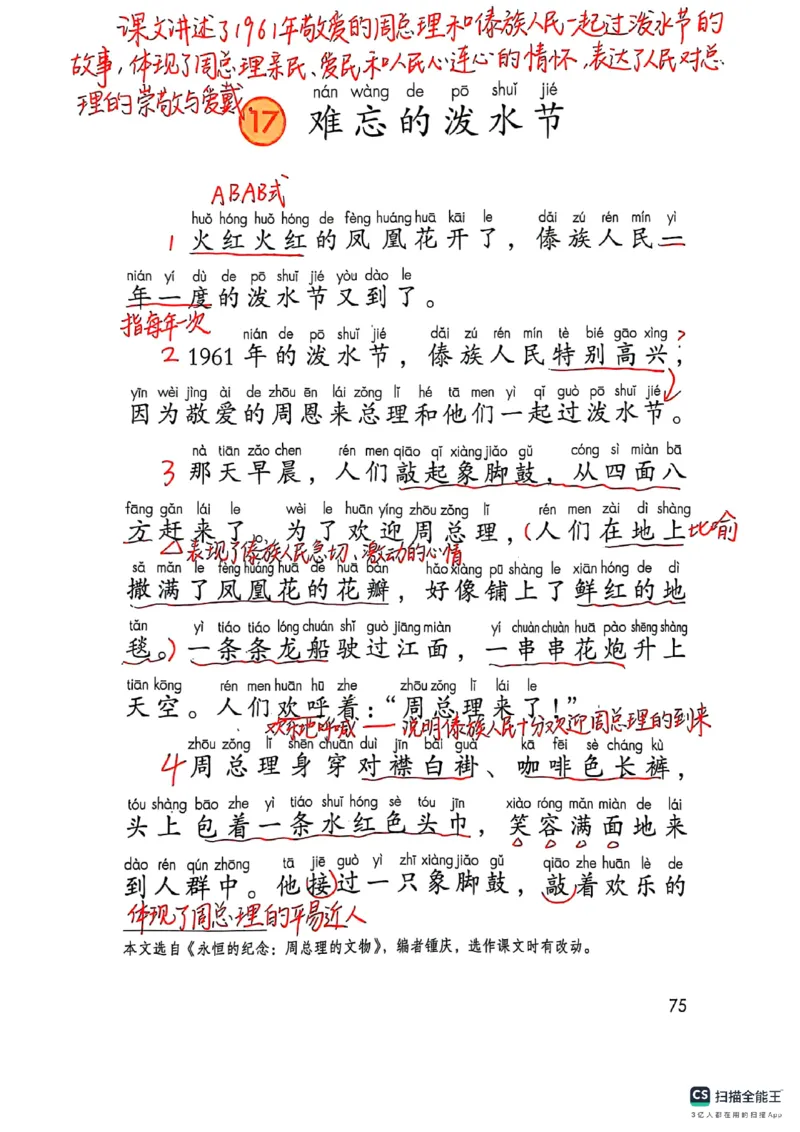 课文讲述了1961年敬爱的周总理和傣族人民一起过泼水节的
故事,体现了周总理亲民、爱民和人民心连心的情怀,表达了人民对总
理的崇敬与爱戴
nán wàng de pō shuǐ jié
17 难忘的泼水节
ABAB式
huǒ hóng huǒ hóng de fèng huáng huā kāi le dǎi zú rén mín yì
1 火红火红的凤凰花开了，傣族人民一
nián yí dù de pō shuǐ jié yòu dào le
年一度的泼水节又到了。
指每年一次
nián de pō shuǐ jié dǎi zú rén mín tè bié gāo xìng ?
2 1961年的泼水节，傣族人民特别高兴，
yīn wèi jìng ài de zhōu ēn lái zǒng lǐ hé tā men yì qǐ guò pō shuǐ jié
因为敬爱的周恩来总理和他们一起过泼水节。
nà tiān zǎo chen rén men qiāo qǐ xiàng jiǎo gǔ cóng sì miàn bā
3 那天早晨，人们敲起象脚鼓，从四面八
fāng gǎn lái le wèi le huān yíng zhōu zǒng lǐ rén men zài dì shàng
方赶来了。为了欢迎周总理，(人们在地上 比喻
△表现了傣族人民急切、激动的心情
sǎ mǎn le fèng huáng huā de huā bàn hǎo xiàng pū shàng le xiān hóng de dì
撒满了凤凰花的花瓣，好像铺上了鲜红的地
tǎn yì tiáo tiáo lóng chuán shǐ guò jiāng miàn yí chuàn chuàn huā pào shēng shàng
毯。)一条条龙船驶过江面，一串串花炮升上
tiān kōng rén men huān hū zhe zhōu zǒng lǐ lái le
天空。人们欢呼着：“周总理来了！”
欢乐地呼喊——说明傣族人民十分欢迎周总理的到来
zhōu zǒng lǐ shēn chuān duì jīn bái guà kā fēi sè cháng kù
4 周总理身穿对襟白褂、咖啡色长裤，
tóu shàng bāo zhe yì tiáo shuǐ hóng sè tóu jīn xiào róng mǎn miàn de lái
头上包着一条水红色头巾，笑容满面地来
dào rén qún zhōng tā jiē guò yì zhī xiàng jiǎo gǔ qiāo zhe huān lè de
到人群中。他接过一只象脚鼓，敲着欢乐的
体现了周总理的平易近人
本文选自《永恒的纪念：周总理的文物》，编者锺庆，选作课文时有改动。
75
CS 扫描全能王
3亿人都在用的扫描App